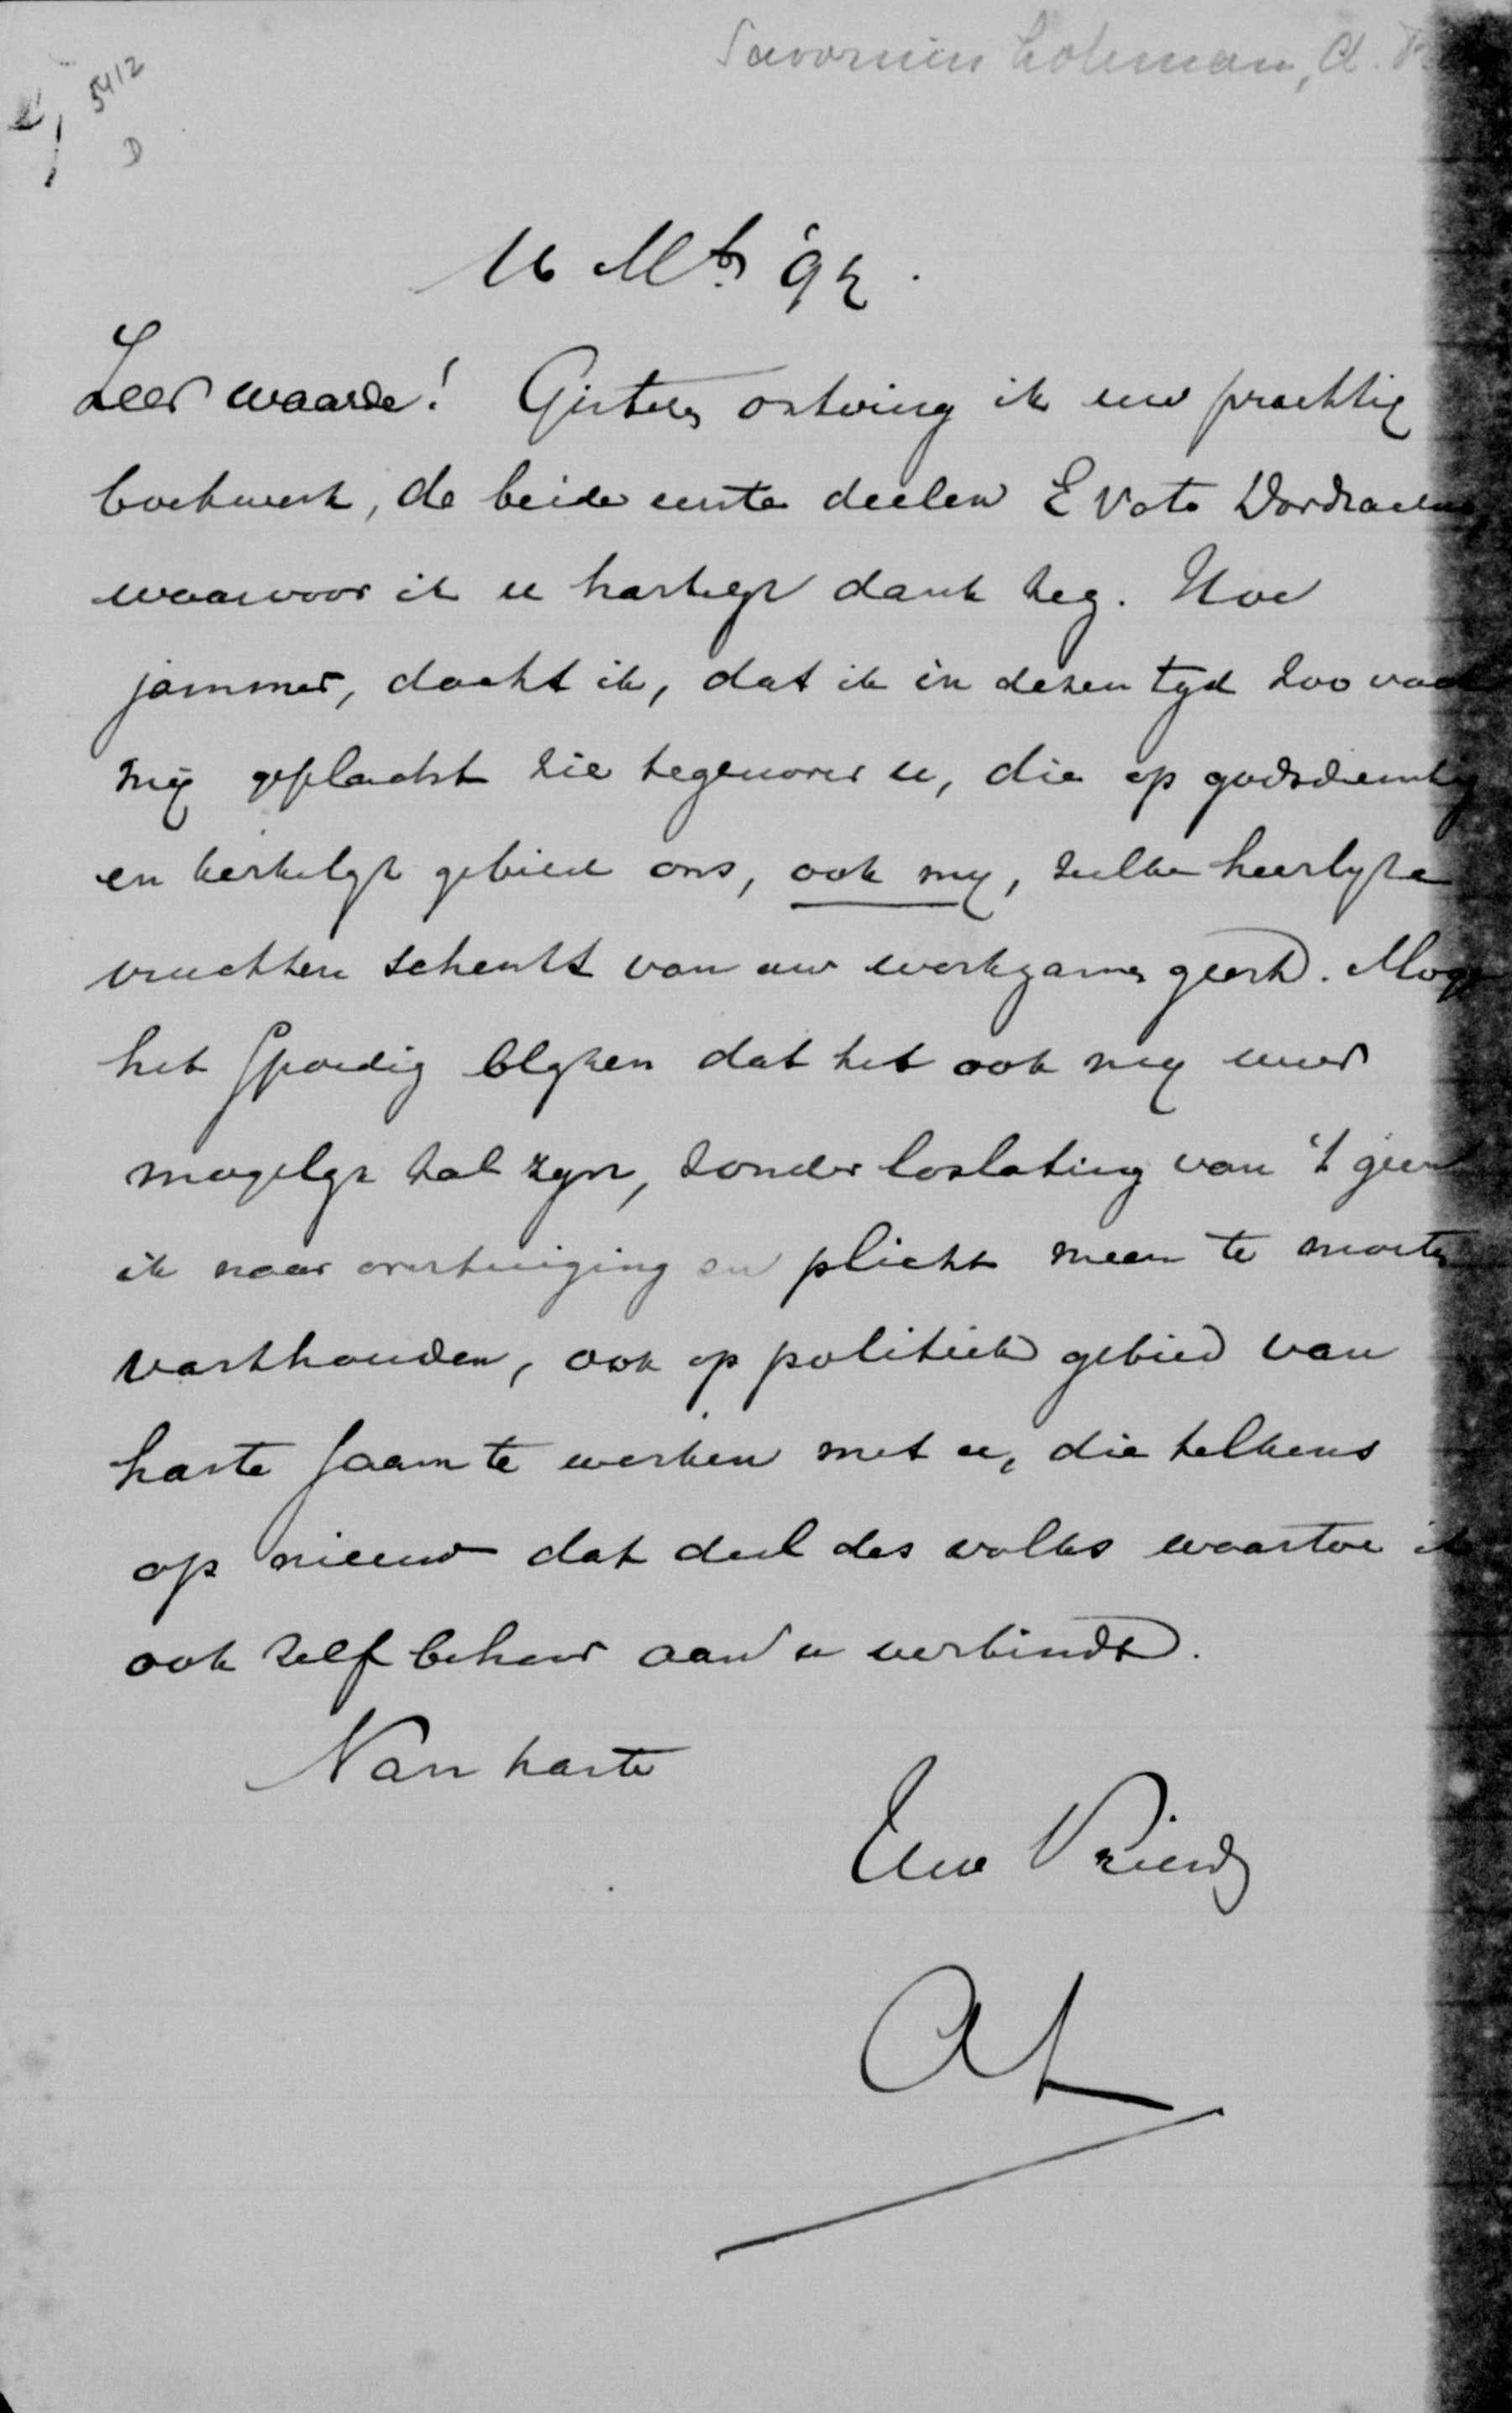 Savornin Lohman, A.
5412
D
16 Mrt '92.
Zeer waarde! Gisteren ontving ik uw prachtig
boekwerk, de beide eerste deelen E Voto Dordraceno,
waarvoor ik u hartelyk dank zeg. Hoe
jammer, dacht ik, dat ik in dezen tyd zoo vaak
my geplaatst zie tegenover u, die op godsdienstig
en kerkelyk gebied ons, ook my, zulke heerlyke
vruchten schenkt van uw werkzamen geest. Moge
het spoedig blyken dat het ook my weer
mogelyk zal zyn, zonder loslating van 't geen
ik naar overtuiging en plicht meen te moeten
vasthouden, ook op politiek gebied van
harte saam te werken met u, die telkens
op nieuw dat deel des volks waartoe ik
ook zelf behoor aan u verbindt.
Van harte
Uw Vriend
AL